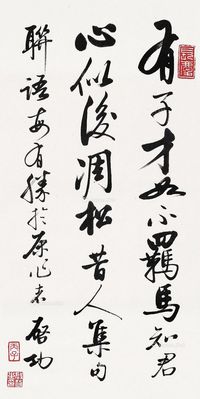 有子才如不羈馬知君
心似後凋松昔人集句
聯語每有勝於原作者
啓功